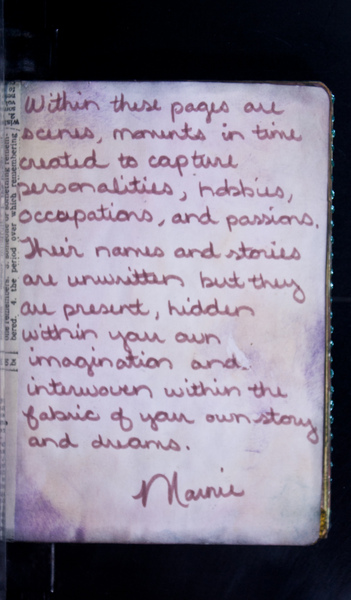 Within these pages are
scenes, moments in time
created to capture
personalities, hobbies,
occupations, and passions.
Their names and stories
are unwritten but they
are present, hidden
within your own
imagination and
interwoven within the
fabric of your own story
and dreams.
Marnie
bered. 4. the period over which remembering